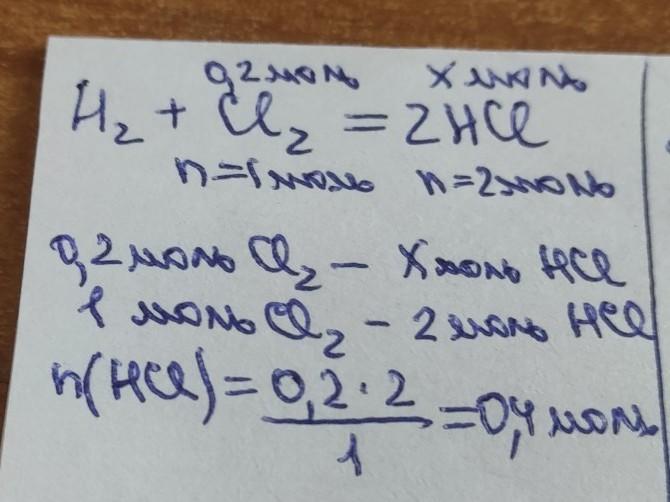 0,2моль xмоль
H₂ + Cl₂ = 2HCl
n=1моль n=2моль
0,2моль Cl₂ – xмоль HCl
1 моль Cl₂ – 2моль HCl
n(HCl) = 0,2·2/1 = 0,4моль